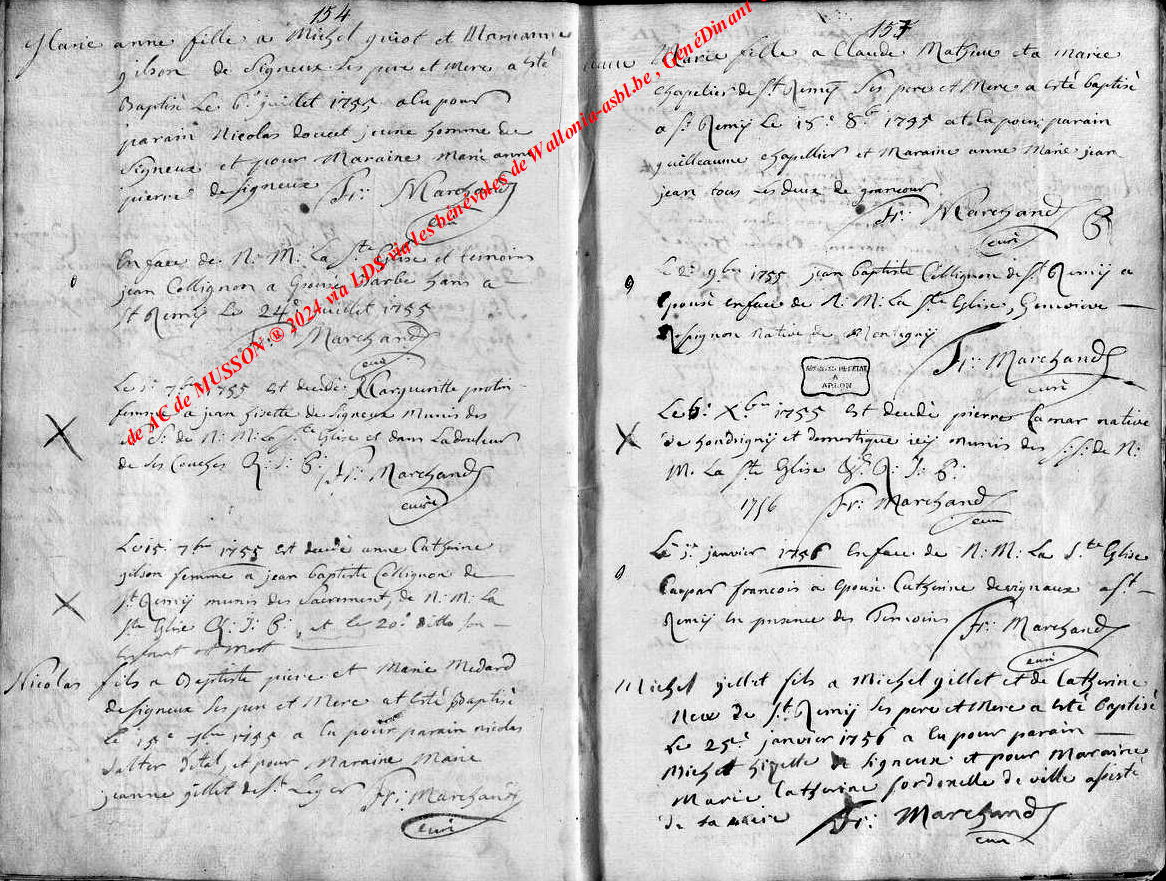 154
Marie anne fille a Michel guiot et Marianne
gilson de Signeux Ses pere et Mere a esté
Baptisé Le 6e juillet 1755 a lu pour
parain Nicolas doucet jeune homme de
Signeux et pour Maraine Marie anne
pierre de Signeux Fr: Marchand
curé
En face de N: M: La Ste Eglise et temoins
jean Collignon a Epousé barbe hans a
St Remy Le 24e juillet 1755
Fr: Marchand
curé
Le 1r 7bre 1755 est decedé Margueritte
femme a jean hisette de Signeux Munis des
de N: M: La Ste Eglise et dans La douleur
de Ses Couches R: J: P: Fr: Marchand
curé
Le 15: 7bre 1755 est decedé anne Catherine
gilson femme a jean baptiste Collignon de
St Remy munis des Sacrement, de N: M: La
Ste Eglise R: J: P: et le 20e ditto Son
Enfant est mort
Nicolas fils a Baptiste pierre et Marie Medard
de Signeux Ses pere et Mere at esté Baptisé
le 15e 1755 a lu pour parain nicolas
d'étal, et pour Maraine Marie
jeanne gillet de St Leger Fr: Marchand
curé
157
Marie fille a Claude Mathieu et a marie
Chapelier de St Remy Ses pere et Mere a esté baptisé
a St Remy Le 18e 8br 1755 at lu pour parain
guilleaume Chapellier et Maraine anne Marie jean
jean tous Les deux de grancour
Fr: Marchand
curé
Le 2e 9bre 1755 jean baptiste Collignon de St Remy a
Epousé en face de N: M: La Ste Eglise, Genevieve
Respignon native de Montigny
Fr: Marchand
curé
ARCHIVES DE L'ETAT
A
ARLON
Le 6: Xbre 1755 est decedé pierre Camar native
de hondrigny et domestique icy munis des S:S: de N:
M: La Ste Eglise &: R: J: P:
1756 Fr: Marchand
curé
Le janvier 1756 En face de N: M: La Ste Eglise
Caspar francois a epousé Catherine devignaux a St
Remy En presence des Temoins Fr: Marchand
curé
Michel gillet fils a Michel gillet et de Catherine
de St Remy Ses pere et Mere a esté baptisé
Le 25e janvier 1756 a lu pour parain
Michel hizette de Signeux et pour Maraine
Marie Catherine Sordonelle de ville assisté
de Fr: Marchand
curé
de AC de MUSSON ® 2024 via LDS via les bénévoles de Wallonia-asbl.be , GénéDinant